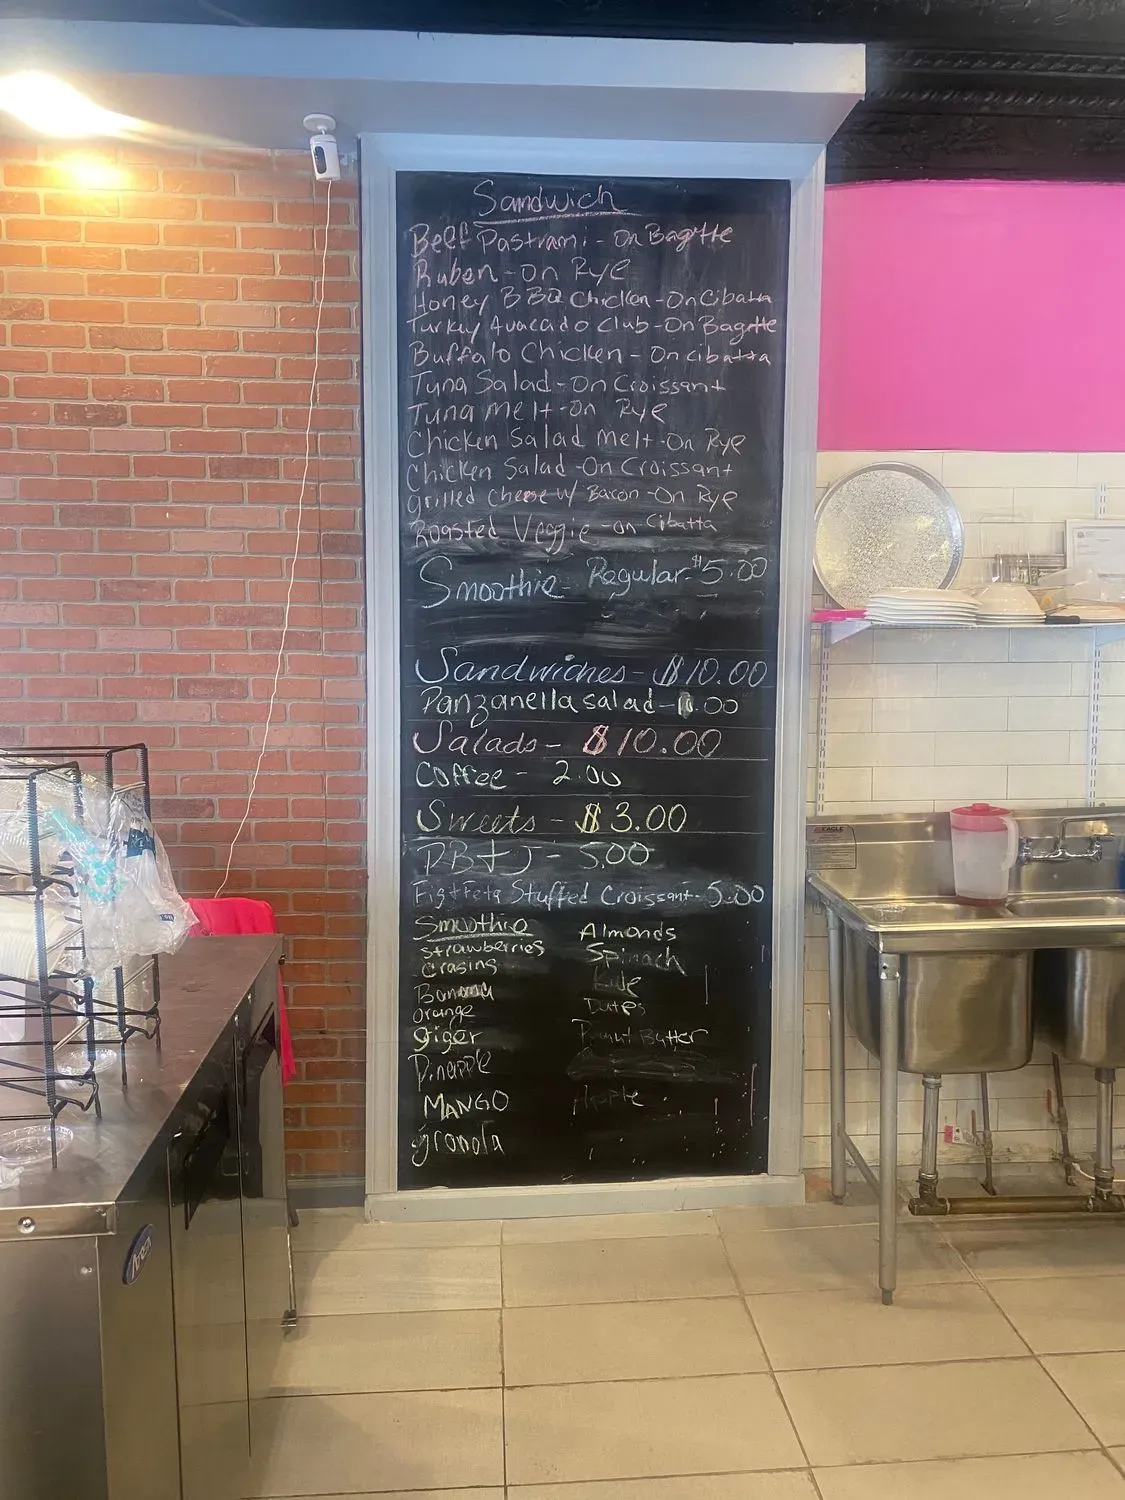 Sandwich
Beef Pastrami - On Bagette
Ruben - On Rye
Honey BBQ Chicken - On Cibatta
Turkey Avacado Club - On Bagette
Buffalo Chicken - On cibatta
Tuna Salad - On Croissant
Tuna melt - On Rye
Chicken Salad melt - On Rye
Chicken Salad - On Croissant
grilled cheese w/ Bacon - On Rye
Roasted Veggie - on Cibatta
Smoothie - Regular - $5.00
Sandwiches - $10.00
Panzanella salad - .00
Salads - $10.00
Coffee - 2.00
Sweets - $3.00
PB+J - 5.00
Fig + Feta Stuffed Croissant - 5.00
Smoothie
strawberries
Crasins
Banana
orange
Giger
Pineapple
MANGO
granola
Almonds
Spinach
Dates
Peanut Butter
Apple
EAGLE